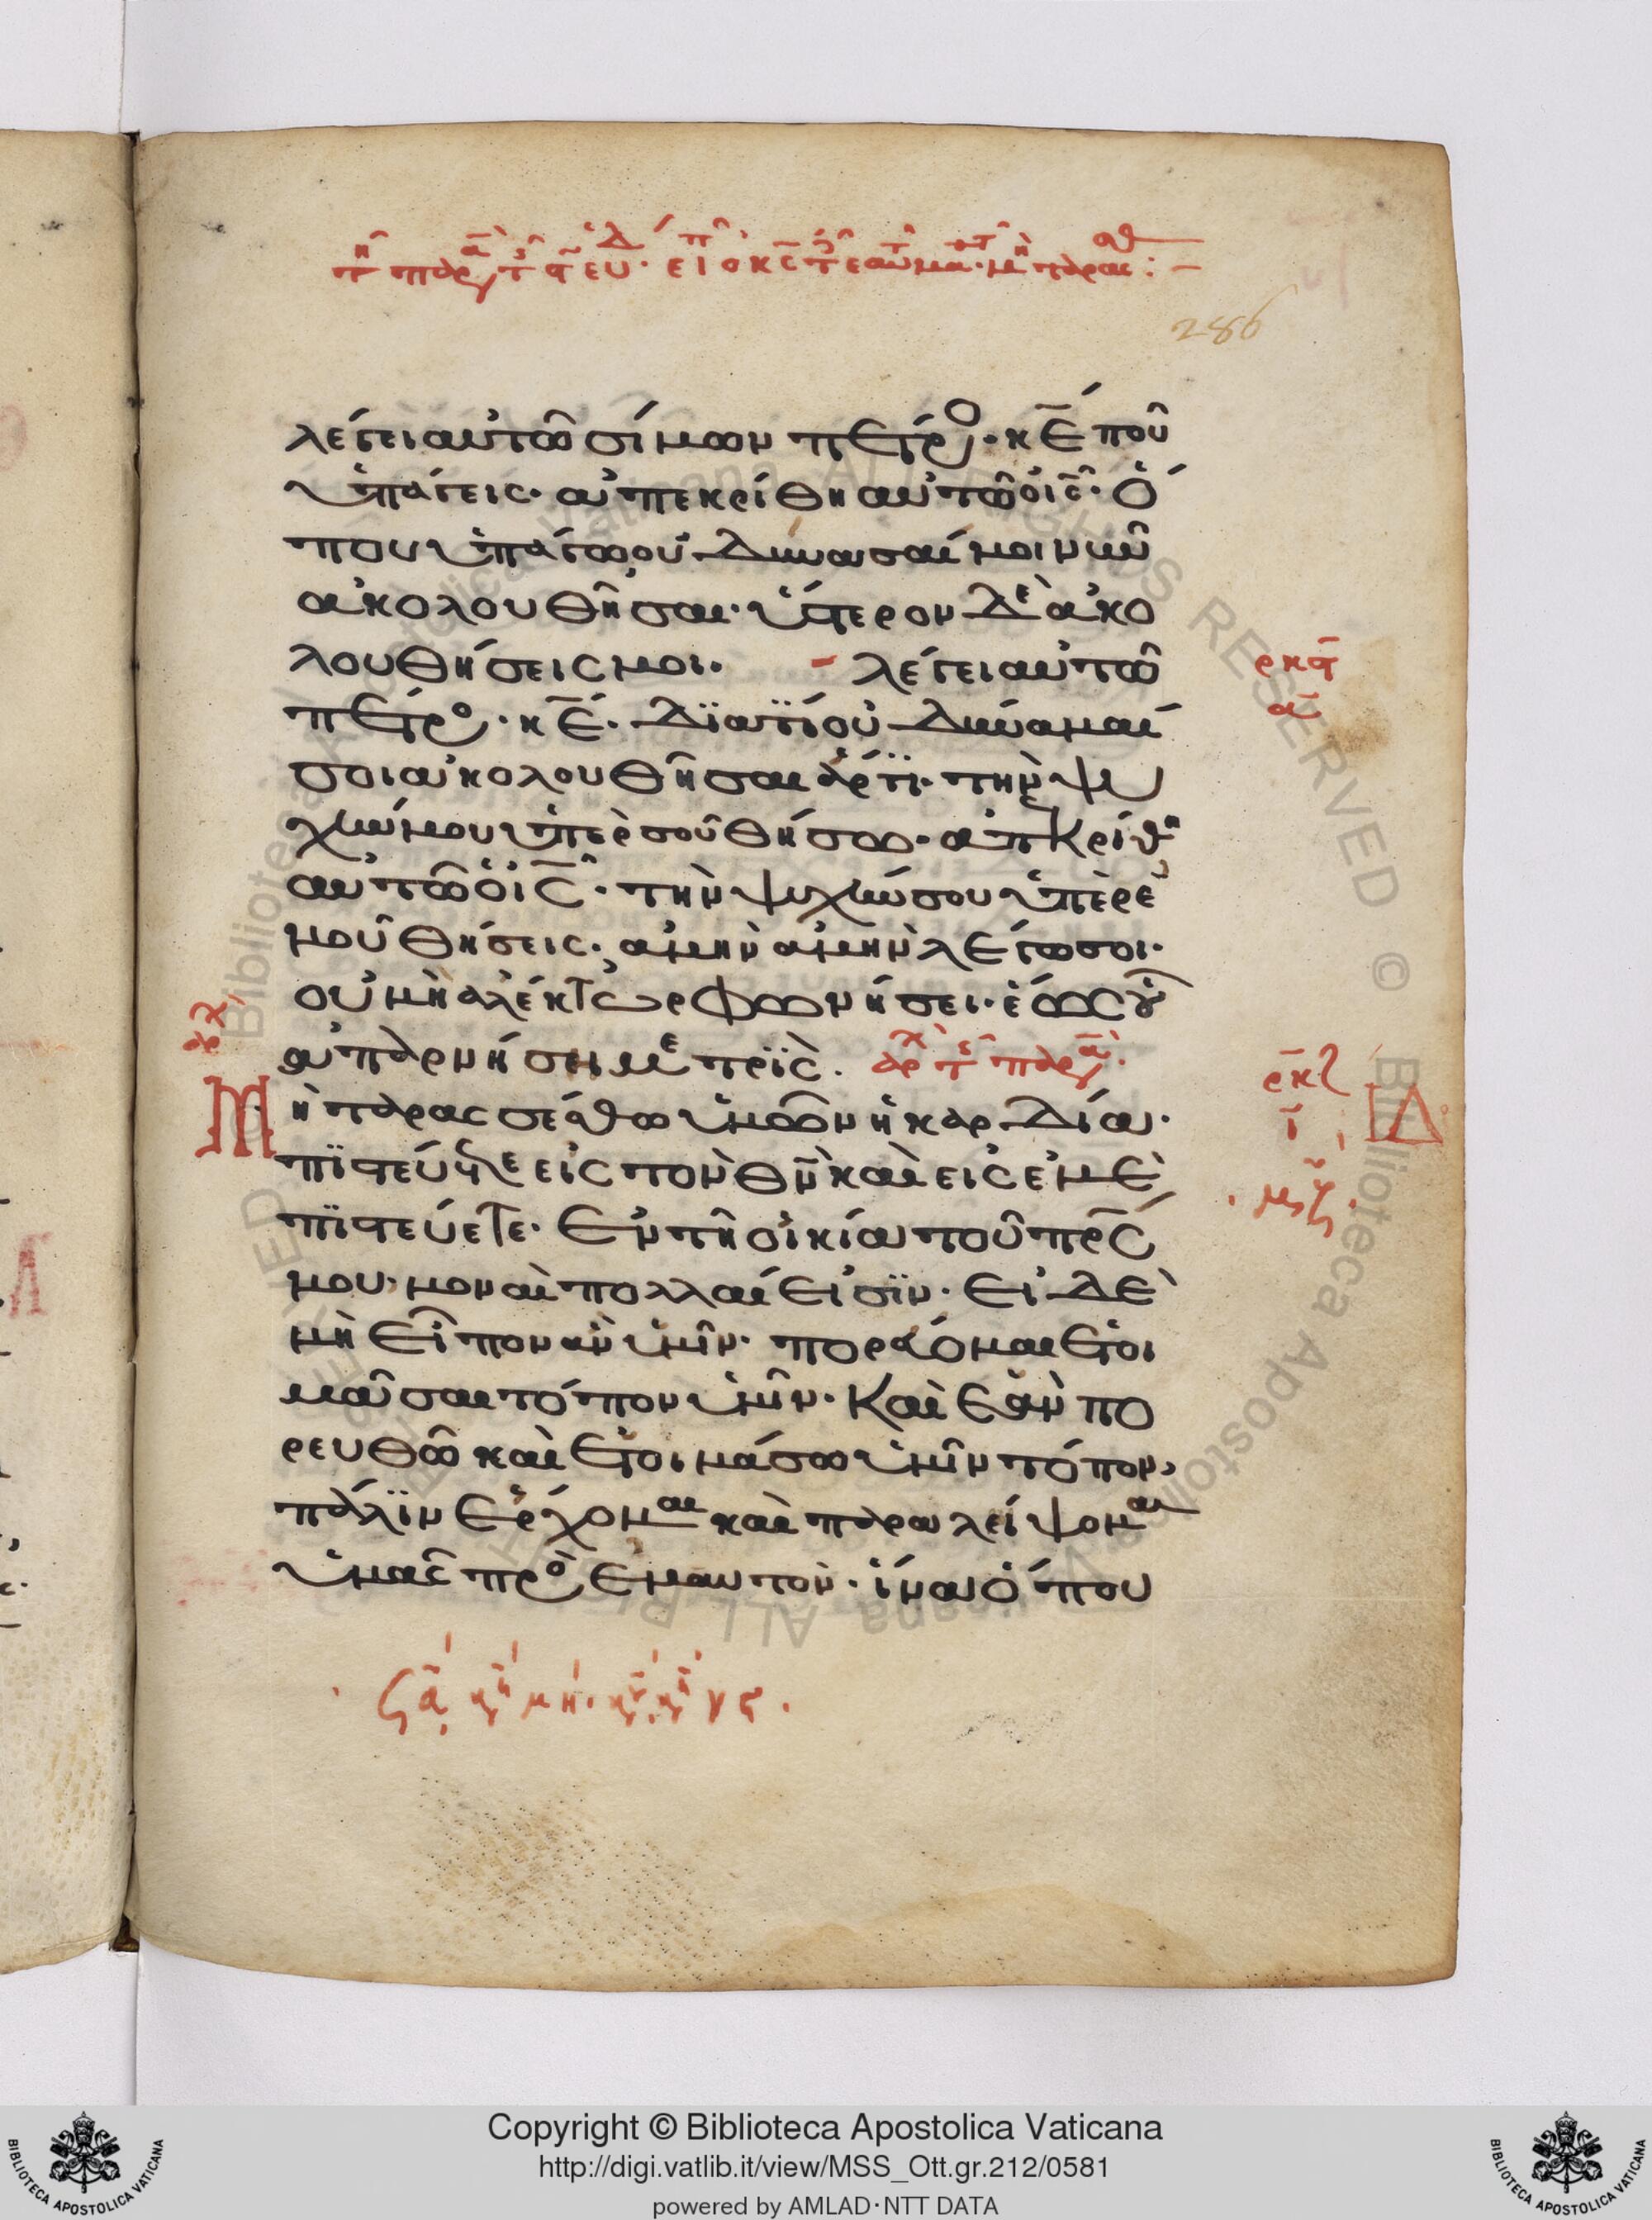 286
λέγει αὐτῶ σίμων πέτρο. κ̅ε̅ ποῦ
ὑπάγεις. ἀπεκρίθη αὐτῶ ὁ ι̅ς̅. ὅ
που ὑπάγω οὐ δύνασαί μοι νῦν
ἀκολουθῆσαι. ὕστερον δὲ ἀκο
λουθήσεις μοι. - λέγει αὐτῶ
πέτρο. κ̅ε̅. διατί οὐ δύναμαί
σοι ἀκολουθῆσαι ἄρτϊ. τὴν ψυ
χήν μου ὑπὲρ σοῦ θήσω. ἀπεκρίθη
αὐτῶ ὁ ι̅ς̅. τὴν ψυχήν σου ὑπὲρ ἐ
μοῦ θήσεις. ἀμὴν ἀμὴν λέγω σοι.
οὐ μὴ ἀλέκτωρ φωνήσει. ἕως οὗ
ἀπαρνήσει με τρὶς.
ρκϛ
α
Μ
ὴ ταρασσέσθω ὑμῶν ἡ καρδία.
πϊστεύετε εἰς τὸν θ̅ν̅ καὶ εἰς ἐμὲ
πϊστεύετε. ἐν τῆ οἰκία τοῦ π̅ρ̅ς̅
μου. μοναὶ πολλαί εἰσϊν. εἰ δὲ
μὴ εἶπον ἂν ὑμῖν. πορεύομαι ἑτοι
μάσαι τόπον ὑμῖν. καὶ ἐὰν πο
ρευθῶ καὶ ἑτοιμάσω ὑμῖν τόπον,
πάλϊν ἔρχομαι καὶ παραλείψομαι
ὑμᾶς προ ἐμαυτὸν. ἵνα ὅπου
Copyright © Biblioteca Apostolica Vaticana
http://digi.vatlib.it/view/MSS_Ott.gr.212/0581
powered by AMLAD·NTT DATA
BIBLIOTECA APOSTOLICA VATICANA
BIBLIOTECA APOSTOLICA VATICANA